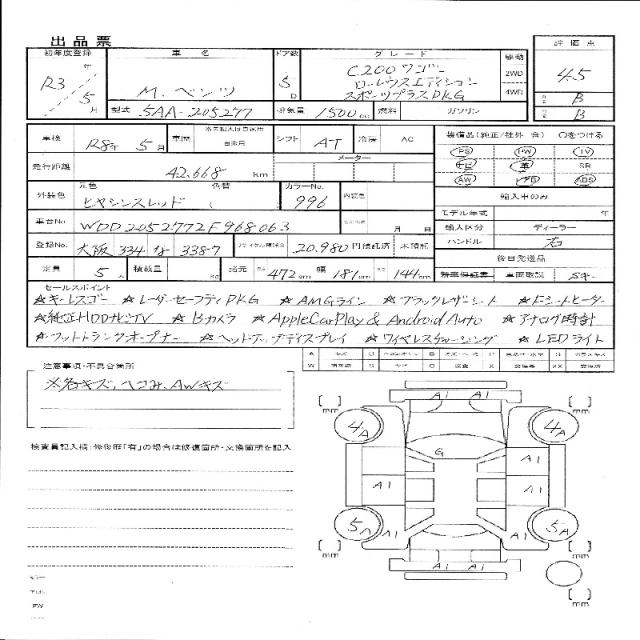 出品票
初年度登録 車名 ドア数 グレード 駆動 評価点
R3年 5月 M.ベンツ 5D C200ワゴン 2WD 4.5
ローレウスエディション 4WD B
スポーツプラスPKG B
型式 5AA-205277 排気量 1500cc 燃料 ガソリン
車検 R8年 5月 車歴 自家用 シフト AT 冷房 AC 装備品(純正/社外 含) ○をつける
走行距離 42,668 km メーター PS PW TV
SR
AW ABS
外装色 元色 ヒヤシンスレッド 色替 ( カラーNo. 996 内装色 輸入車のみ
モデル年式 年
車台No. WDD2052772F968063 月 日 輸入区分 ディーラー
登録No. 大阪 334 な 338-7 リサイクル預託金 20,980 円預託済 未預託 ハンドル 右
後日発送品
定員 5人 積載量 kg 諸元 長さ 472cm 幅 181cm 高さ 144cm 新車保証書 車両取説 Sキー
セールスポイント
☆キーレスゴー ☆レーダーセーフティPKG ☆AMGライン ☆ブラックレザーシート ☆Fシートヒーター
☆純正HDDナビTV ☆Bカメラ ☆AppleCarPlay & Android Auto ☆アナログ時計
☆フットトランクオープナー ☆ヘッドアップディスプレイ ☆ワイヤレスチャージング ☆LEDライト
注意事項・不具合箇所
※各キズ、ヘコみ、AWキズ
検査員記入欄・修復歴「有」の場合は修復箇所・交換箇所を記入
A1 A1
4A 4A
G
A1
A1 A1
5A 5A
A1 A1
A1 A1
mm mm
mm mm
mm